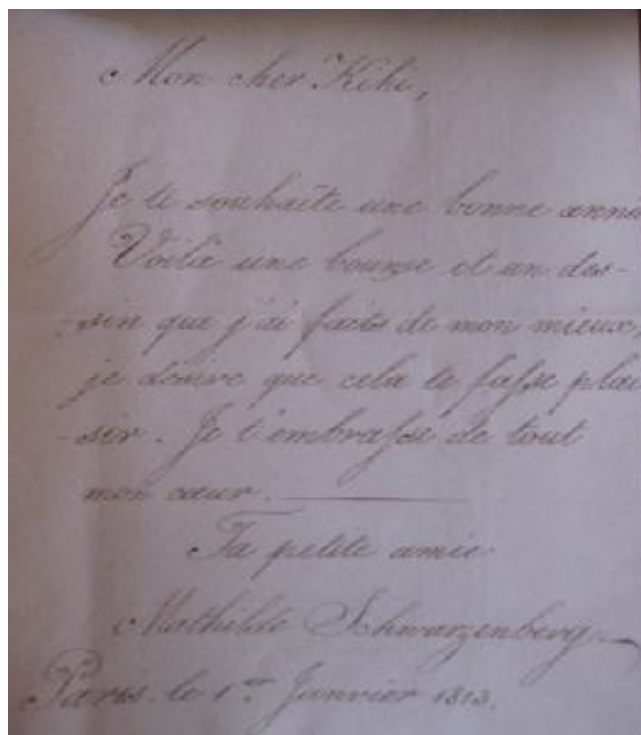 Mon cher Kiki,
Je te souhaite une bonne anné
Voilà une bourse et un des-
-sin que j'ai faits de mon mieux,
je désire que cela te fasse plai
-sir. Je t'embrasse de tout
mon cœur.
Ta petite amie
Mathilde Schwarzenberg
Paris le 1er Janvier 1813.